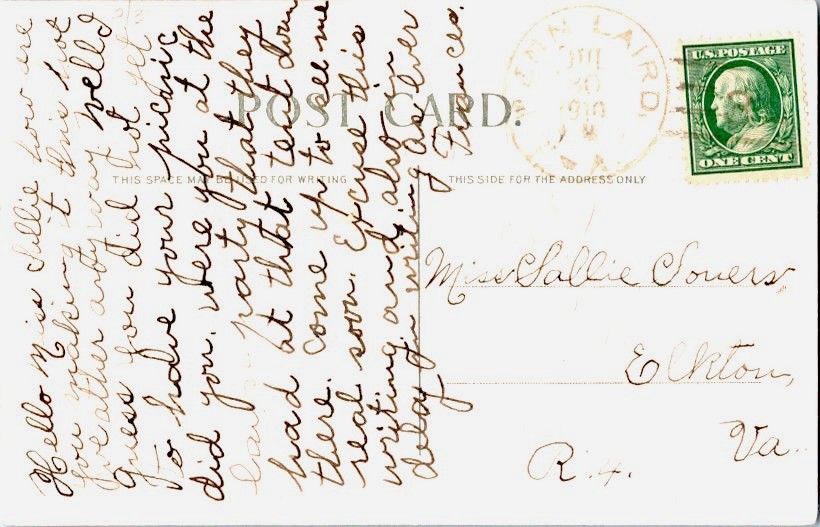 POST CARD.
THIS SPACE MAY BE USED FOR WRITING
THIS SIDE FOR THE ADDRESS ONLY
U.S. POSTAGE
ONE CENT
LAIRD
30
1910
VA
Hello Miss Sallie how are
you making it this hot
weather any way. Well I
guess you did not get
to have your picnic
did you. Were you at the
party that they
had at that tent down
there. Come up to see me
real soon. Excuse this
writing and also my
delay in writing as ever
Frances.
Miss Sallie Sowers
Elkton,
Va.
R. 4.